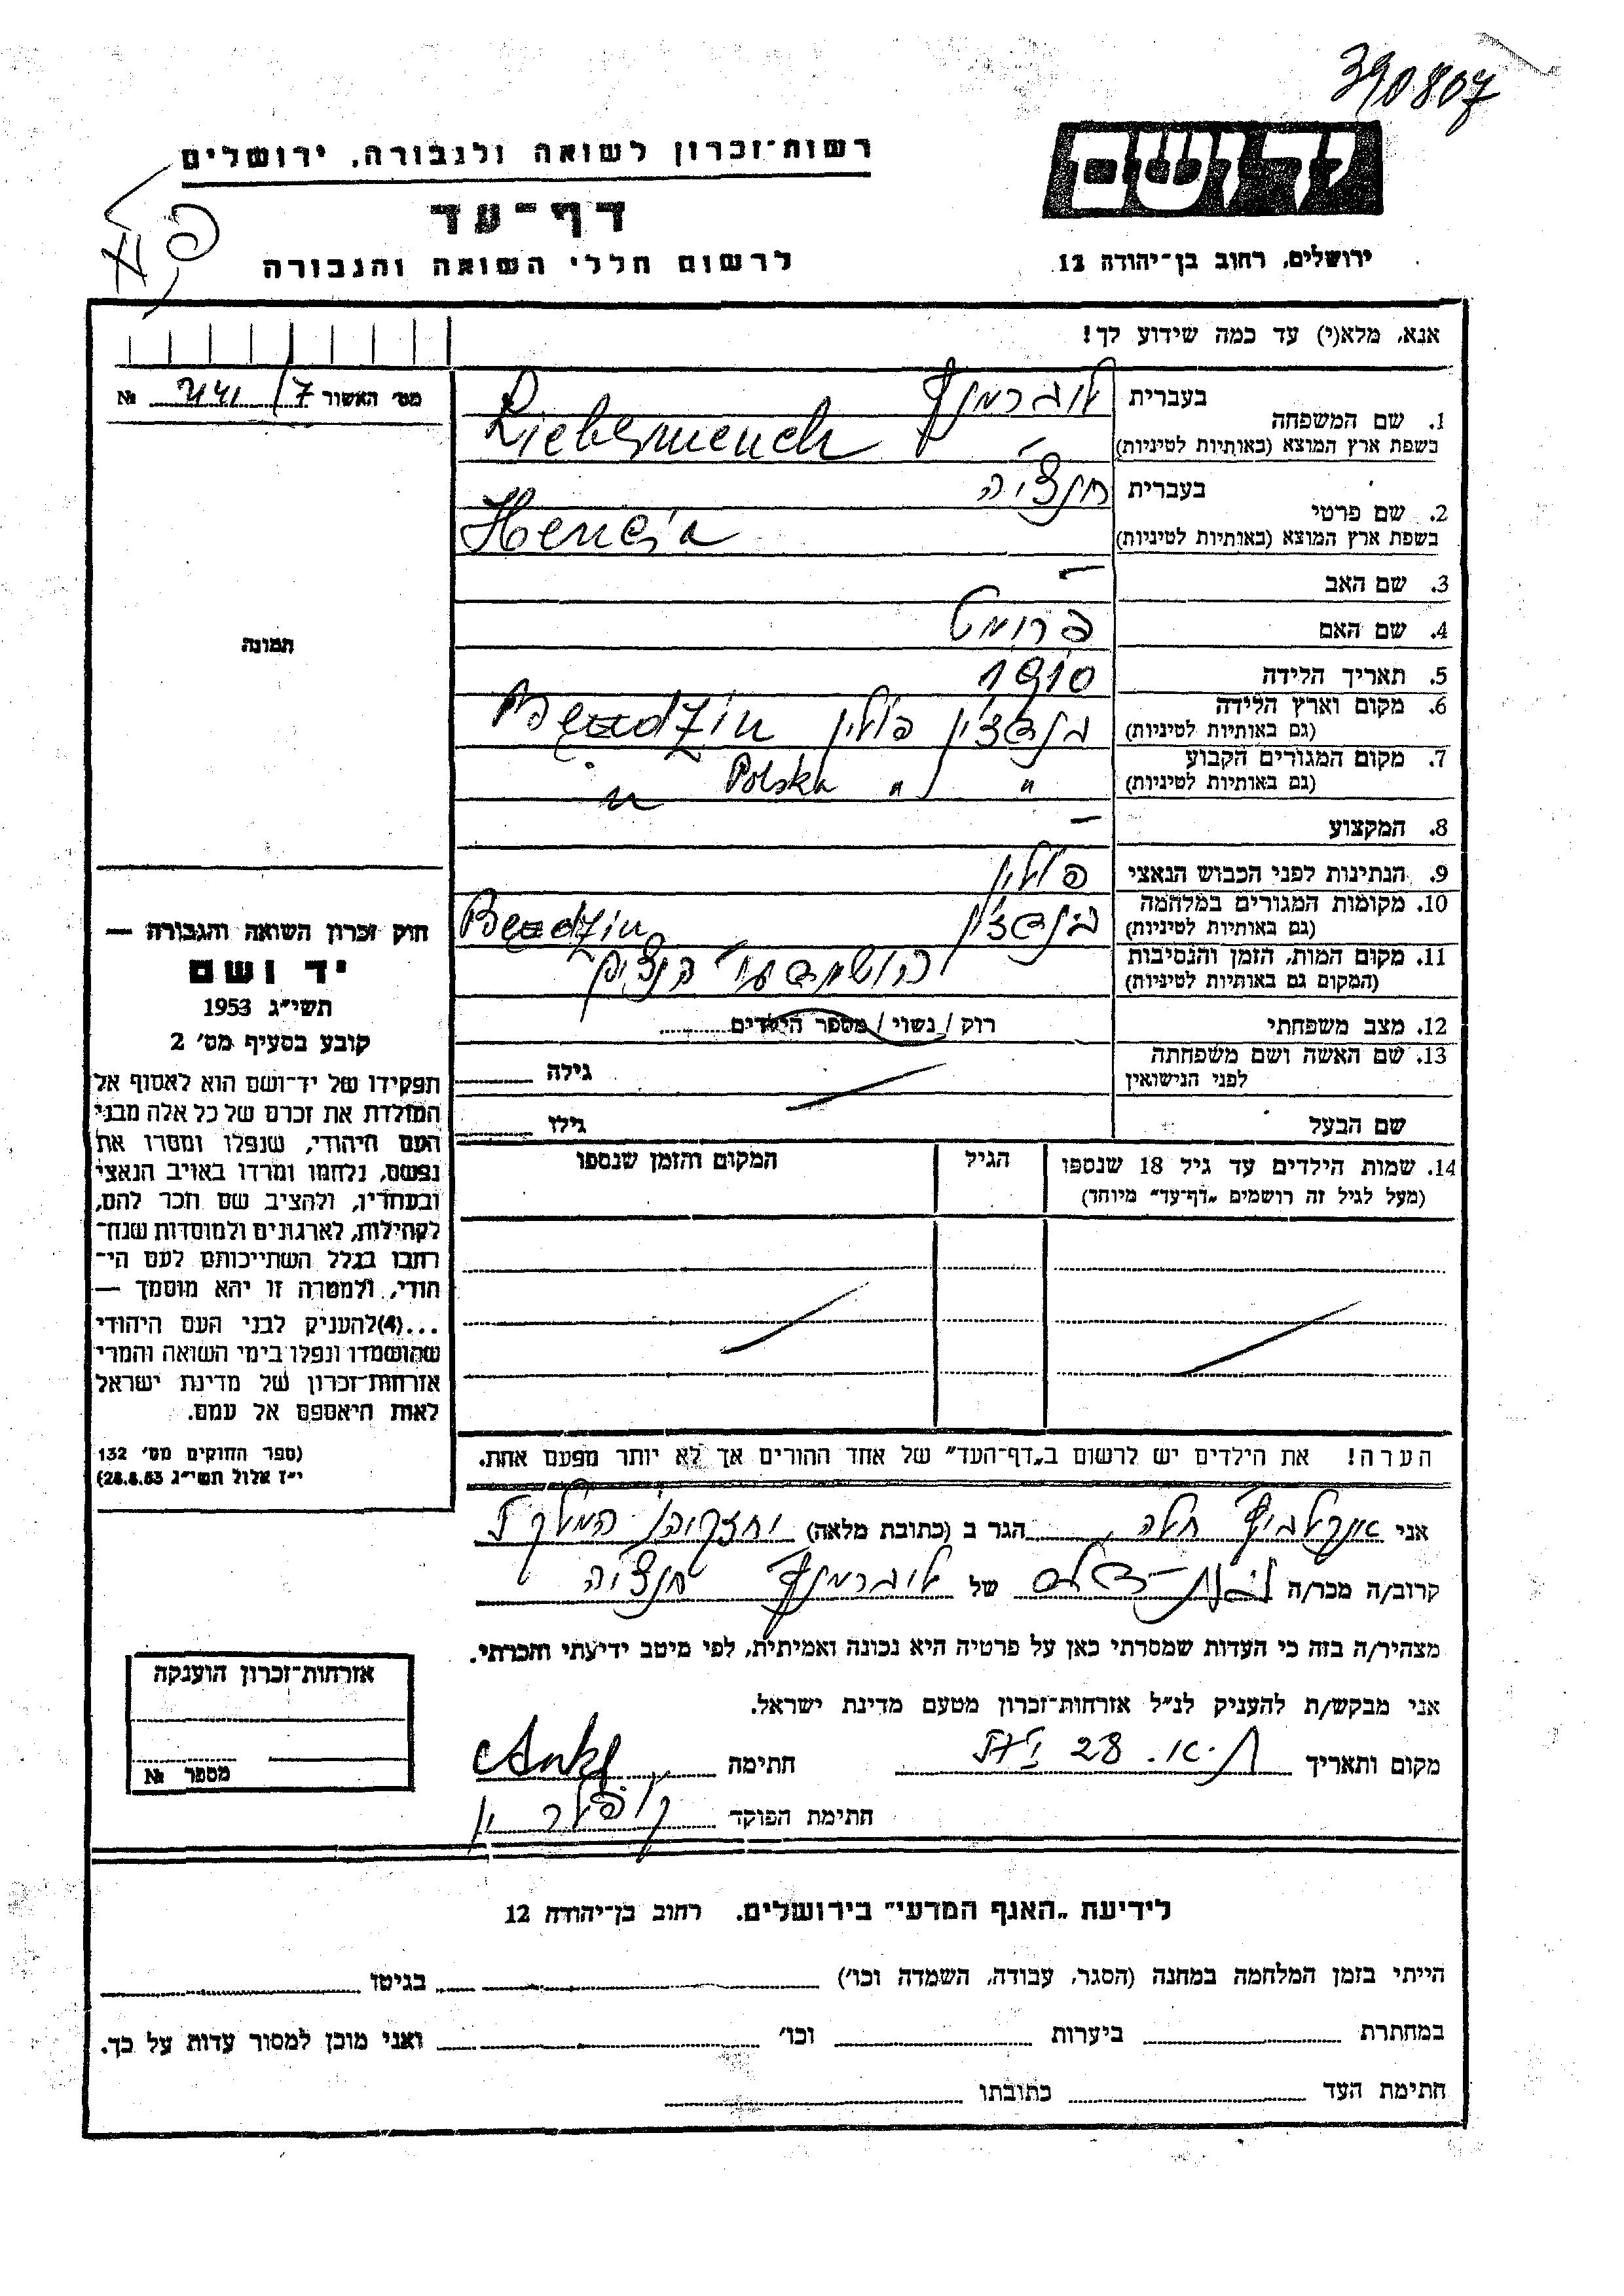 390807
רשות־זכרון לשואה ולגבורה, ירושלים
יד ושם
דף־עד
לרשום חללי השואה והגבורה
ירושלים, רחוב בן־יהודה 12
אנא, מלא(י) עד כמה שידוע לך!
מס׳ האשור №
1. שם המשפחה
בעברית ליברמנץ
בשפת ארץ המוצא (באותיות לטיניות) Liebermench
2. שם פרטי
בעברית חנציה
בשפת ארץ המוצא (באותיות לטיניות) Hencia
3. שם האב –
4. שם האם פרומט
5. תאריך הלידה 1910
6. מקום וארץ הלידה בנדצין פולין Bendzin
(גם באותיות לטיניות)
7. מקום המגורים הקבוע " " Polska "
(גם באותיות לטיניות)
8. המקצוע –
9. הנתינות לפני הכבוש הנאצי פולין
10. מקומות המגורים במלחמה בנדצין Bendzin
(גם באותיות לטיניות)
11. מקום המות, הזמן והנסיבות
(המקום גם באותיות לטיניות)
12. מצב משפחתי רוק / נשוי / מספר הילדים
13. שם האשה ושם משפחתה גילה
לפני הנישואין
שם הבעל גילו
14. שמות הילדים עד גיל 18 שנספו הגיל המקום והזמן שנספו
(מעל לגיל זה רושמים „דף־עד״ מיוחד)
תמונה
חוק זכרון השואה והגבורה —
יד ושם
תשי״ג 1953
קובע בסעיף מס׳ 2
תפקידו של יד־ושם הוא לאסוף אל
המולדת את זכרם של כל אלה מבני
העם היהודי, שנפלו ומסרו את
נפשם, נלחמו ומרדו באויב הנאצי
ובעוזריו, ולהציב שם וזכר להם,
לקהילות, לארגונים ולמוסדות שנח־
רבו בגלל השתייכותם לעם הי־
הודי, ולמטרה זו יהא מוסמך —
...(4) להעניק לבני העם היהודי
שהושמדו ונפלו בימי השואה והמרי
אזרחות־זכרון של מדינת ישראל
לאות היאספם אל עמם.
(ספר החוקים מס׳ 132
י״ז אלול תשי״ג 28.8.53)
הערה! את הילדים יש לרשום ב„דף־העד״ של אחד ההורים אך לא יותר מפעם אחת.
אני חלה הגר ב (כתובת מלאה) המלך
קרוב/ה מכר/ה של ליברמנץ חנציה
מצהיר/ה בזה כי העדות שמסרתי כאן על פרטיה היא נכונה ואמיתית, לפי מיטב ידיעתי והכרתי.
אני מבקש/ת להעניק לנ״ל אזרחות־זכרון מטעם מדינת ישראל.
מקום ותאריך ת.א. 28 חתימה
חתימת הפוקד
אזרחות־זכרון הוענקה
מספר №
לידיעת „האגף המדעי״ בירושלים. רחוב בן־יהודה 12
הייתי בזמן המלחמה במחנה (הסגר, עבודה, השמדה וכו׳) בגיטו
במחתרת ביערות וכו׳ ואני מוכן למסור עדות על כך.
חתימת העד כתובתו